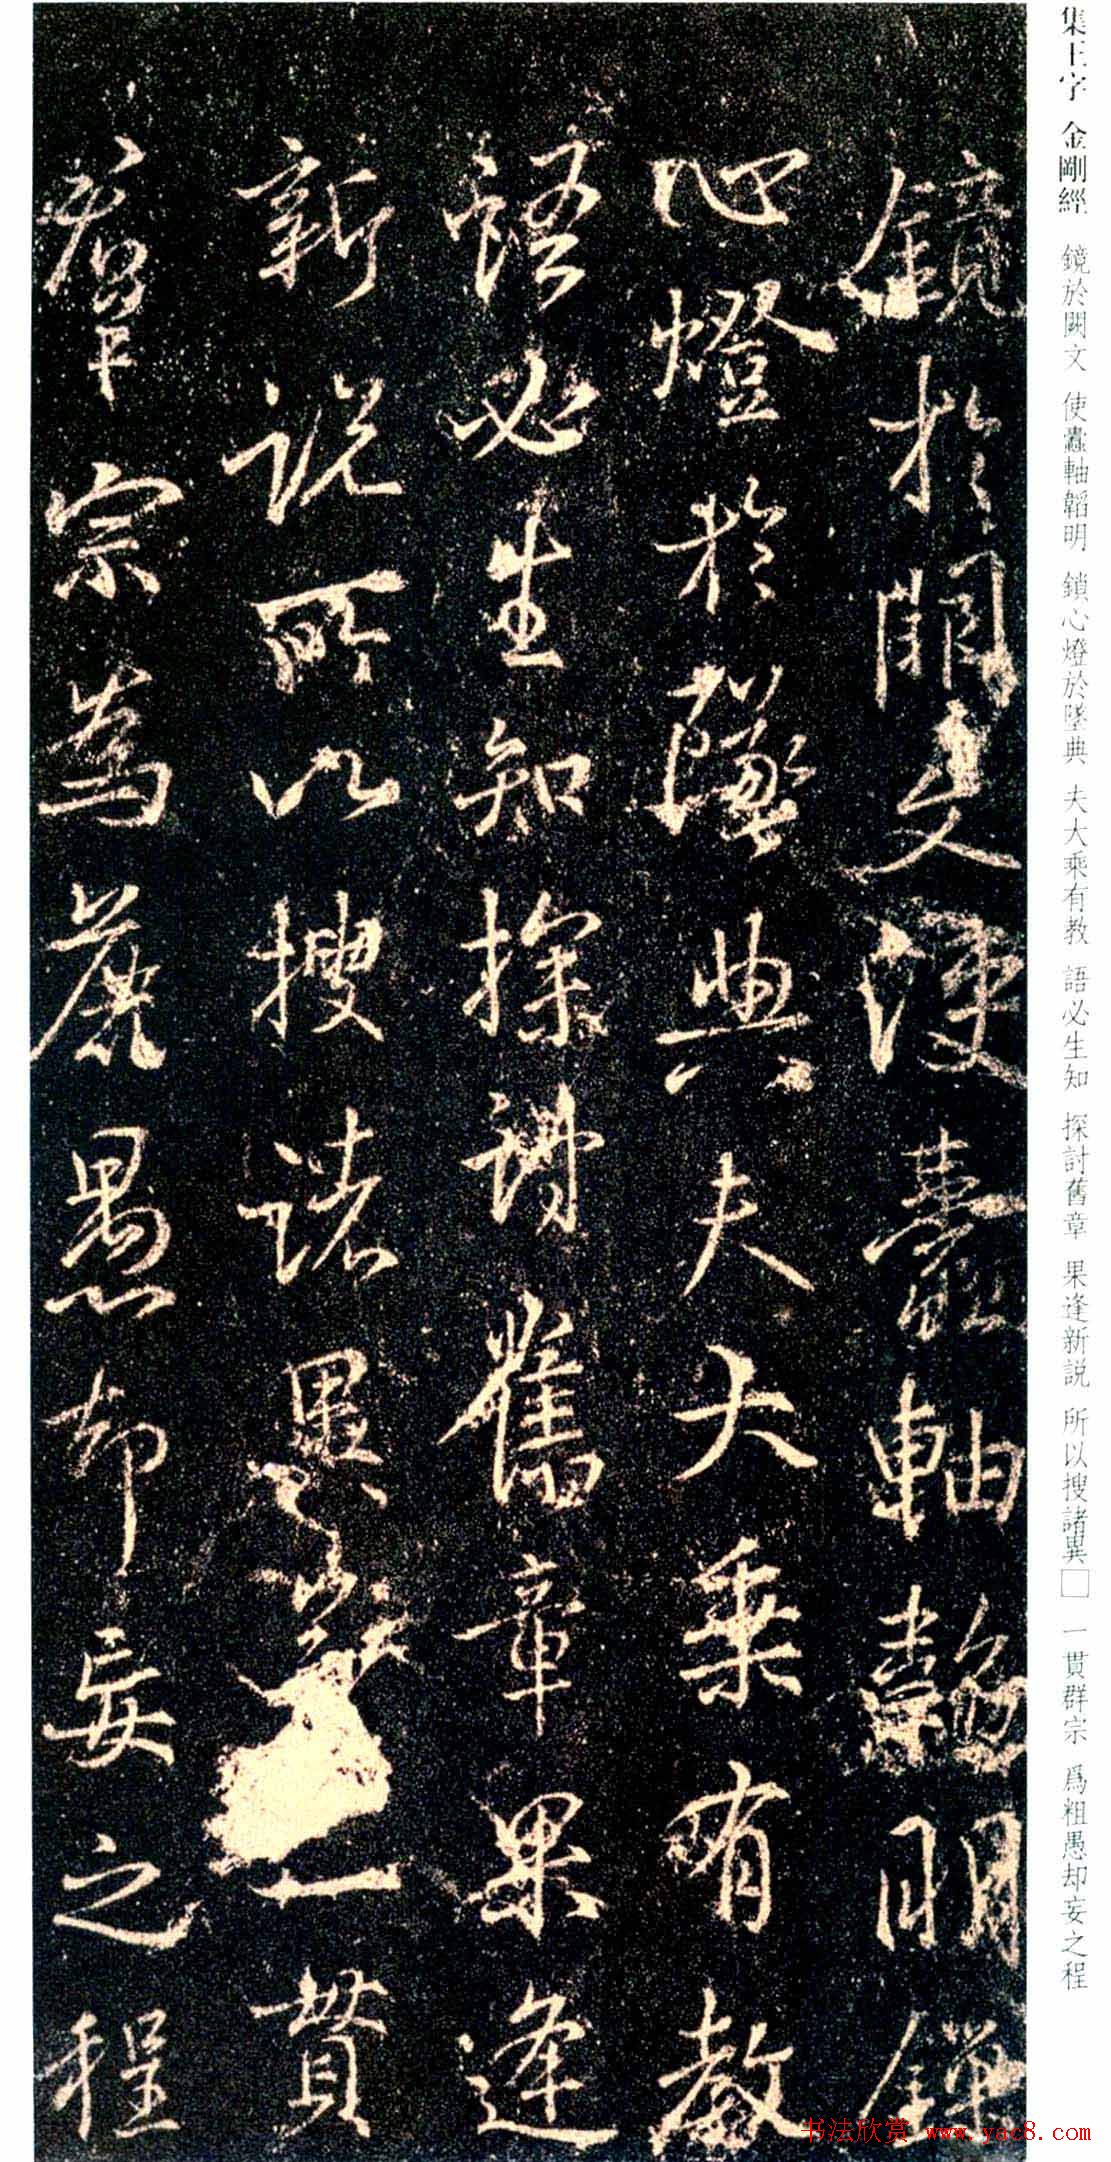 集王字 金剛經 鏡於闕文 使蠹軸韜明 鎖心燈於墜典 夫大乘有教 語必生知 探討舊章 果逢新説 所以搜諸異□ 一貫群宗 爲粗愚却妄之程
鏡於闕文使蠹軸韜明鎖
心燈於墜典夫大乘有教
語必生知探討舊章果逢
新說所以搜諸異一貫
羣宗為麁愚却妄之程
书法欣赏 www.yac8.com